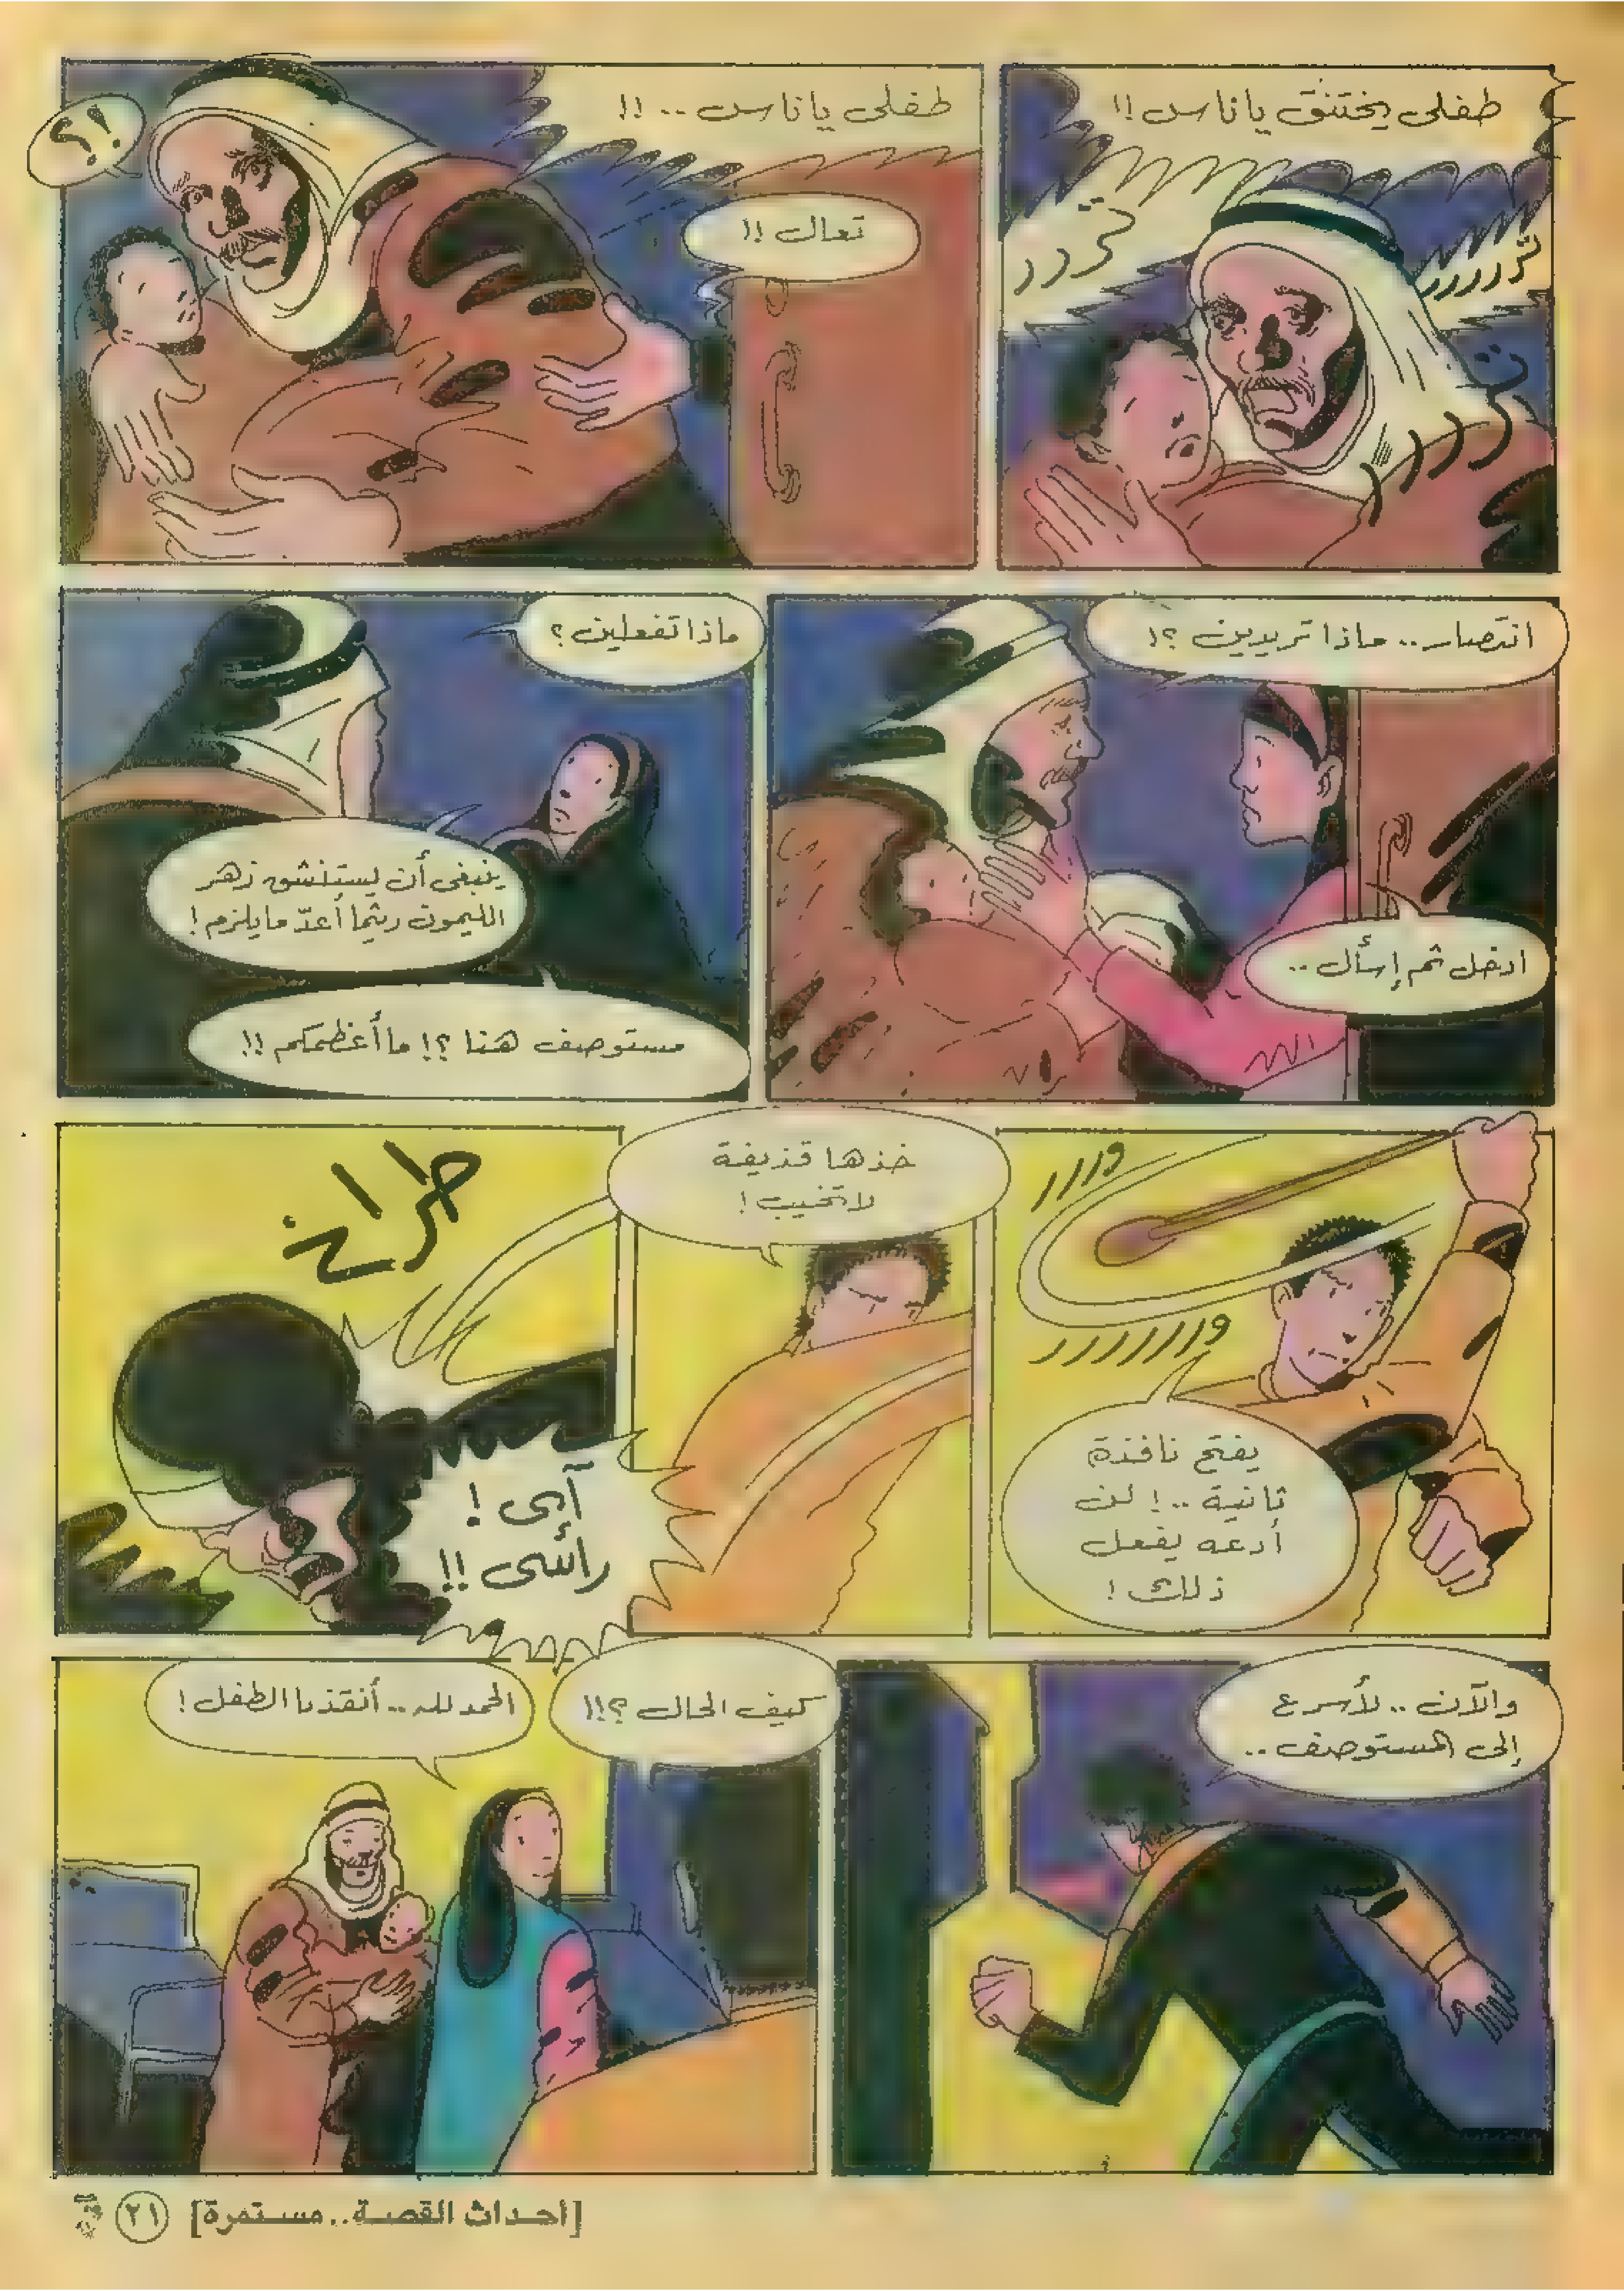 طفلى يختنق يا ناس !!
تررر
تررررر
تررررر
طفلى يا ناس .. !!
!؟
تعال !!
انتصار .. ماذا تريدين ؟!
ادخل ثم إسأل ..
ماذا تفعلين ؟
ينبغى أن يستنشق زهر
الليمون ريثما أعدّ ما يلزم !
مستوصف هنا ؟! ما أعظمكم !!
وررر
وررررررر
يفتح نافذة
ثانية .. ! لن
أدعه يفعل
ذلك !
خذها قذيفة
لا تخيب !
طراخ
آىى !
رأسى !!
والآن .. لأسرع
إلى المستوصف ..
كيف الحال ؟!!
الحمد لله .. أنقذنا الطفل !
[أحداث القصة .. مستمرة] ٢١